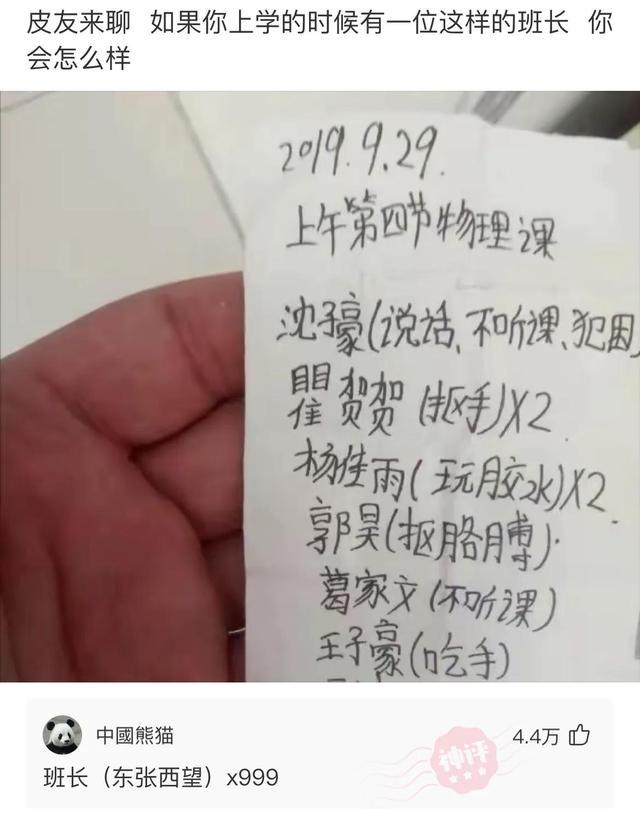 皮友来聊 如果你上学的时候有一位这样的班长 你
会怎么样
2019.9.29.
上午第四节物理课
沈子豪(说话、不听课、犯困)
瞿贺贺(抠手)X2
杨佳雨(玩胶水)X2.
郭昊(抠胳膊).
葛家文(不听课)
王子豪(吃手)
中國熊猫
4.4万
神评
班长（东张西望）x999